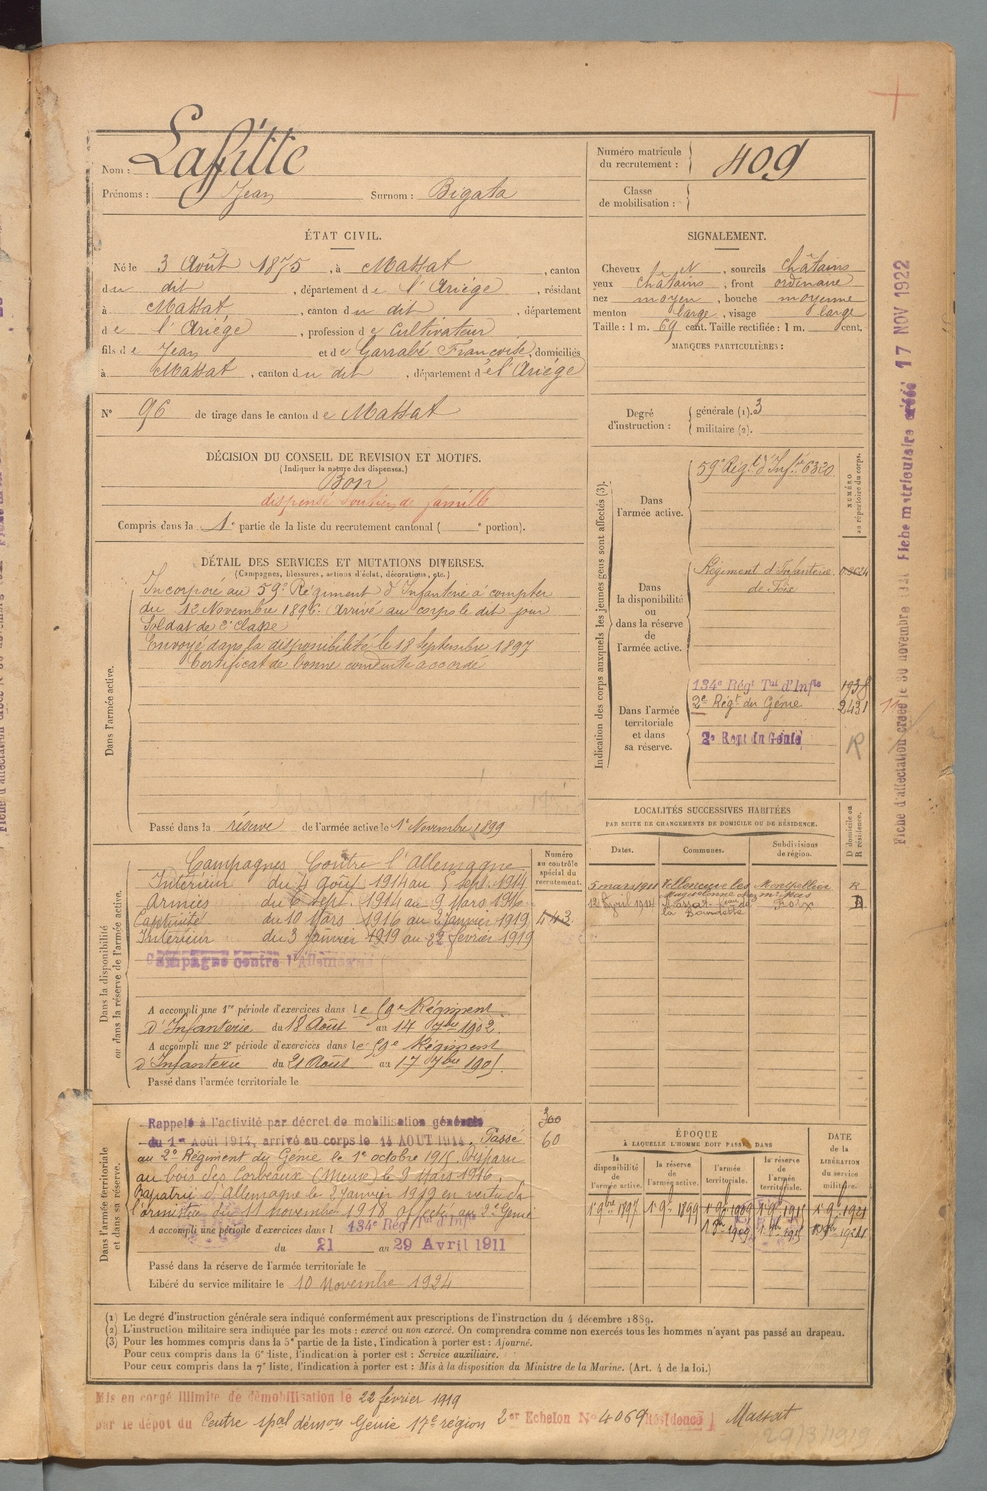 Nom : Lafitte
Prénoms : Jean Surnom : Bigata
Numéro matricule du recrutement : 409
Classe de mobilisation :
ÉTAT CIVIL.
Né le 3 Août 1875, à Massat, canton
du dit, département de l'Ariège, résidant
à Massat, canton du dit, département
de l'Ariège, profession de Cultivateur
fils de Jean et de Garrabé Françoise, domiciliés
à Massat, canton du dit, département de l'Ariège
N° 96 de tirage dans le canton de Massat
SIGNALEMENT.
Cheveux N, sourcils châtains
yeux châtains, front ordinaire
nez moyen, bouche moyenne
menton large, visage large
Taille : 1 m. 69 cent. Taille rectifiée : 1 m. cent.
MARQUES PARTICULIÈRES :
Degré d'instruction :
générale (1). 3
militaire (2).
DÉCISION DU CONSEIL DE REVISION ET MOTIFS.
(Indiquer la nature des dispenses.)
Bon
dispensé soutien de famille
Compris dans la 1e partie de la liste du recrutement cantonal ( e portion).
DÉTAIL DES SERVICES ET MUTATIONS DIVERSES.
(Campagnes, blessures, actions d'éclat, décorations, etc.)
Dans l'armée active.
Incorporé au 59e Régiment d'Infanterie à compter
du Novembre 1896. Arrivé au corps le dit jour
Soldat de 2e classe
Envoyé dans la disponibilité le 18 Septembre 1897
Certificat de bonne conduite accordé
Passé dans la réserve de l'armée active le 1er Novembre 1899
Indication des corps auxquels les jeunes gens sont affectés (3).
NUMÉRO au répertoire du corps.
Dans l'armée active.
59e Régt d'Infrie 6320
Dans la disponibilité ou dans la réserve de l'armée active.
Régiment d'Infanterie
de Foix
Dans l'armée territoriale et dans sa réserve.
134e Régt Tal d'Infie 1938
2e Régt du Génie 2431
2e Regt du Génie R
LOCALITÉS SUCCESSIVES HABITÉES
PAR SUITE DE CHANGEMENTS DE DOMICILE OU DE RÉSIDENCE.
Dates. Communes. Subdivisions de région. D domicile ou R résidence.
5 mars 1911 Villeneuve les Montpellier R
Maguelonne
12 1914 Massat Foix D
Dans la disponibilité ou dans la réserve de l'armée active.
Numéro au contrôle spécial du recrutement.
Campagnes Contre l'Allemagne
Intérieur du 4 août 1914 au 5 sept. 1914
Armées du 6 sept. 1914 au 9 Mars 1916
Captivité du 10 Mars 1916 au 2 janvier 1919 543
Intérieur du 3 janvier 1919 au 22 février 1919
Campagne contre l'Allemagne
A accompli une 1re période d'exercices dans le 59e Régiment
d'Infanterie du 18 Août au 14 7bre 1902.
A accompli une 2e période d'exercices dans le 59e Régiment
d'Infanterie du 21 Août au 17 7bre 1905.
Passé dans l'armée territoriale le
Dans l'armée territoriale et dans sa réserve.
Rappelé à l'activité par décret de mobilisation générale 300
du 1er Août 1914, arrivé au corps le 14 AOUT 1914. Passé 60
au 2e Régiment du Génie le 1er octobre 1915. Disparu
au bois des Corbeaux (Meuse) le 9 Mars 1916.
Rapatrié d'Allemagne le 2 janvier 1919 en vertu de
l'armistice du 11 novembre 1918 affecté au 2e Génie
A accompli une période d'exercices dans l 134e Rég Tal d'Infie
du 21 au 29 Avril 1911
Passé dans la réserve de l'armée territoriale le
Libéré du service militaire le 10 Novembre 1924
ÉPOQUE
À LAQUELLE L'HOMME DOIT PASSER DANS
la disponibilité de l'armée active. la réserve de l'armée active. l'armée territoriale. la réserve de l'armée territoriale.
DATE DE LA LIBÉRATION du service militaire.
1er 9bre 1897 1er 9bre 1899 1er 9bre 1909 1er 9bre 1915 1er 9bre 1921
(1) Le degré d'instruction générale sera indiqué conformément aux prescriptions de l'instruction du 4 décembre 1889.
(2) L'instruction militaire sera indiquée par les mots : exercé ou non exercé. On comprendra comme non exercés tous les hommes n'ayant pas passé au drapeau.
(3) Pour les hommes compris dans la 5e partie de la liste, l'indication à porter est : Ajourné.
Pour ceux compris dans la 6e liste, l'indication à porter est : Service auxiliaire.
Pour ceux compris dans la 7e liste, l'indication à porter est : Mis à la disposition du Ministre de la Marine. (Art. 4 de la loi.)
Mis en congé illimité de démobilisation le 22 février 1919
par le dépôt du Centre spal démon Génie 17e région 2er Echelon N° 4069 Résidence Massat
29/3/1919
Fiche matriculaire créée 17 NOV 1922
Fiche d'affectation créée le 30 novembre